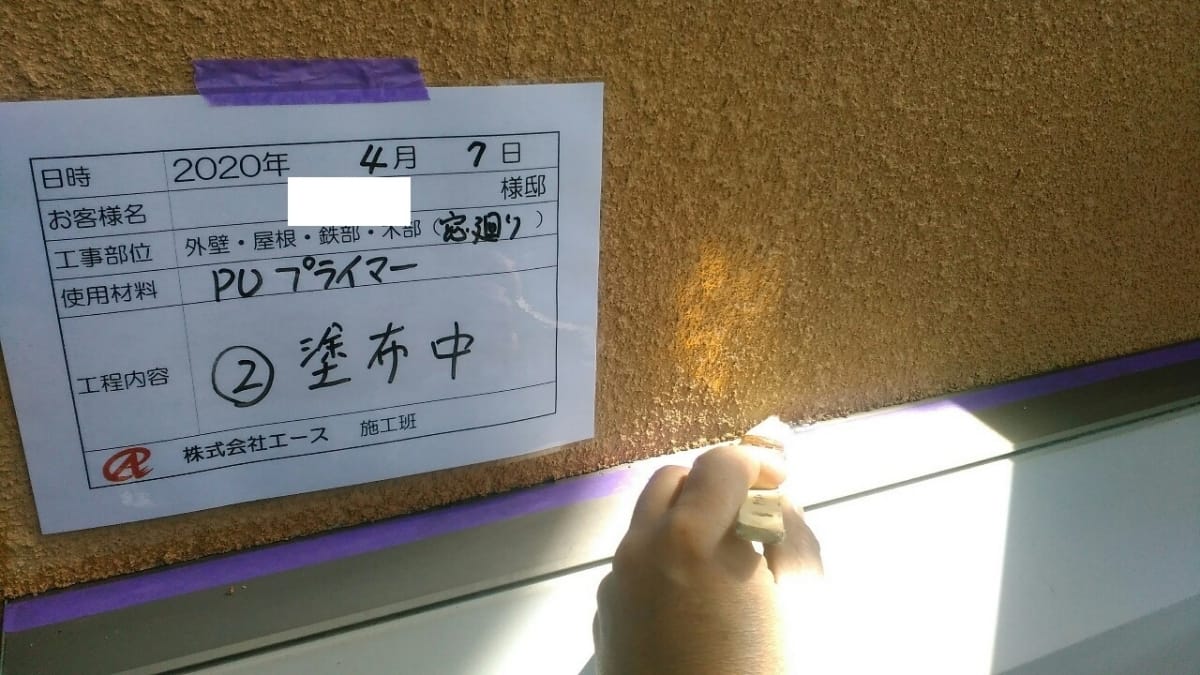 日時 2020年 4月 7日
お客様名 様邸
工事部位 外壁・屋根・鉄部・木部(窓廻り)
使用材料 PUプライマー
工程内容 ②塗布中
株式会社エース 施工班